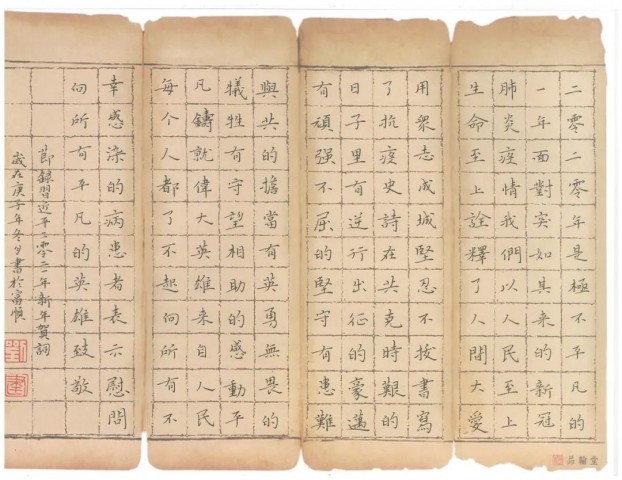 二零二零年是極不平凡的
一年面對突如其来的新冠
肺炎疫情我們以人民至上
生命至上詮釋了人間大愛
用衆志成城堅忍不拔書寫
了抗疫史詩在共克時艱的
日子里有逆行出征的豪邁
有頑强不屈的堅守有患難
與共的擔當有英勇無畏的
犧牲有守望相助的感動平
凡鑄就偉大英雄来自人民
每个人都了不起向所有不
幸感染的病患者表示慰問
向所有平凡的英雄致敬
節録習近平二零二一年新年賀詞
歲在庚子年冬月書於富順
品翰堂